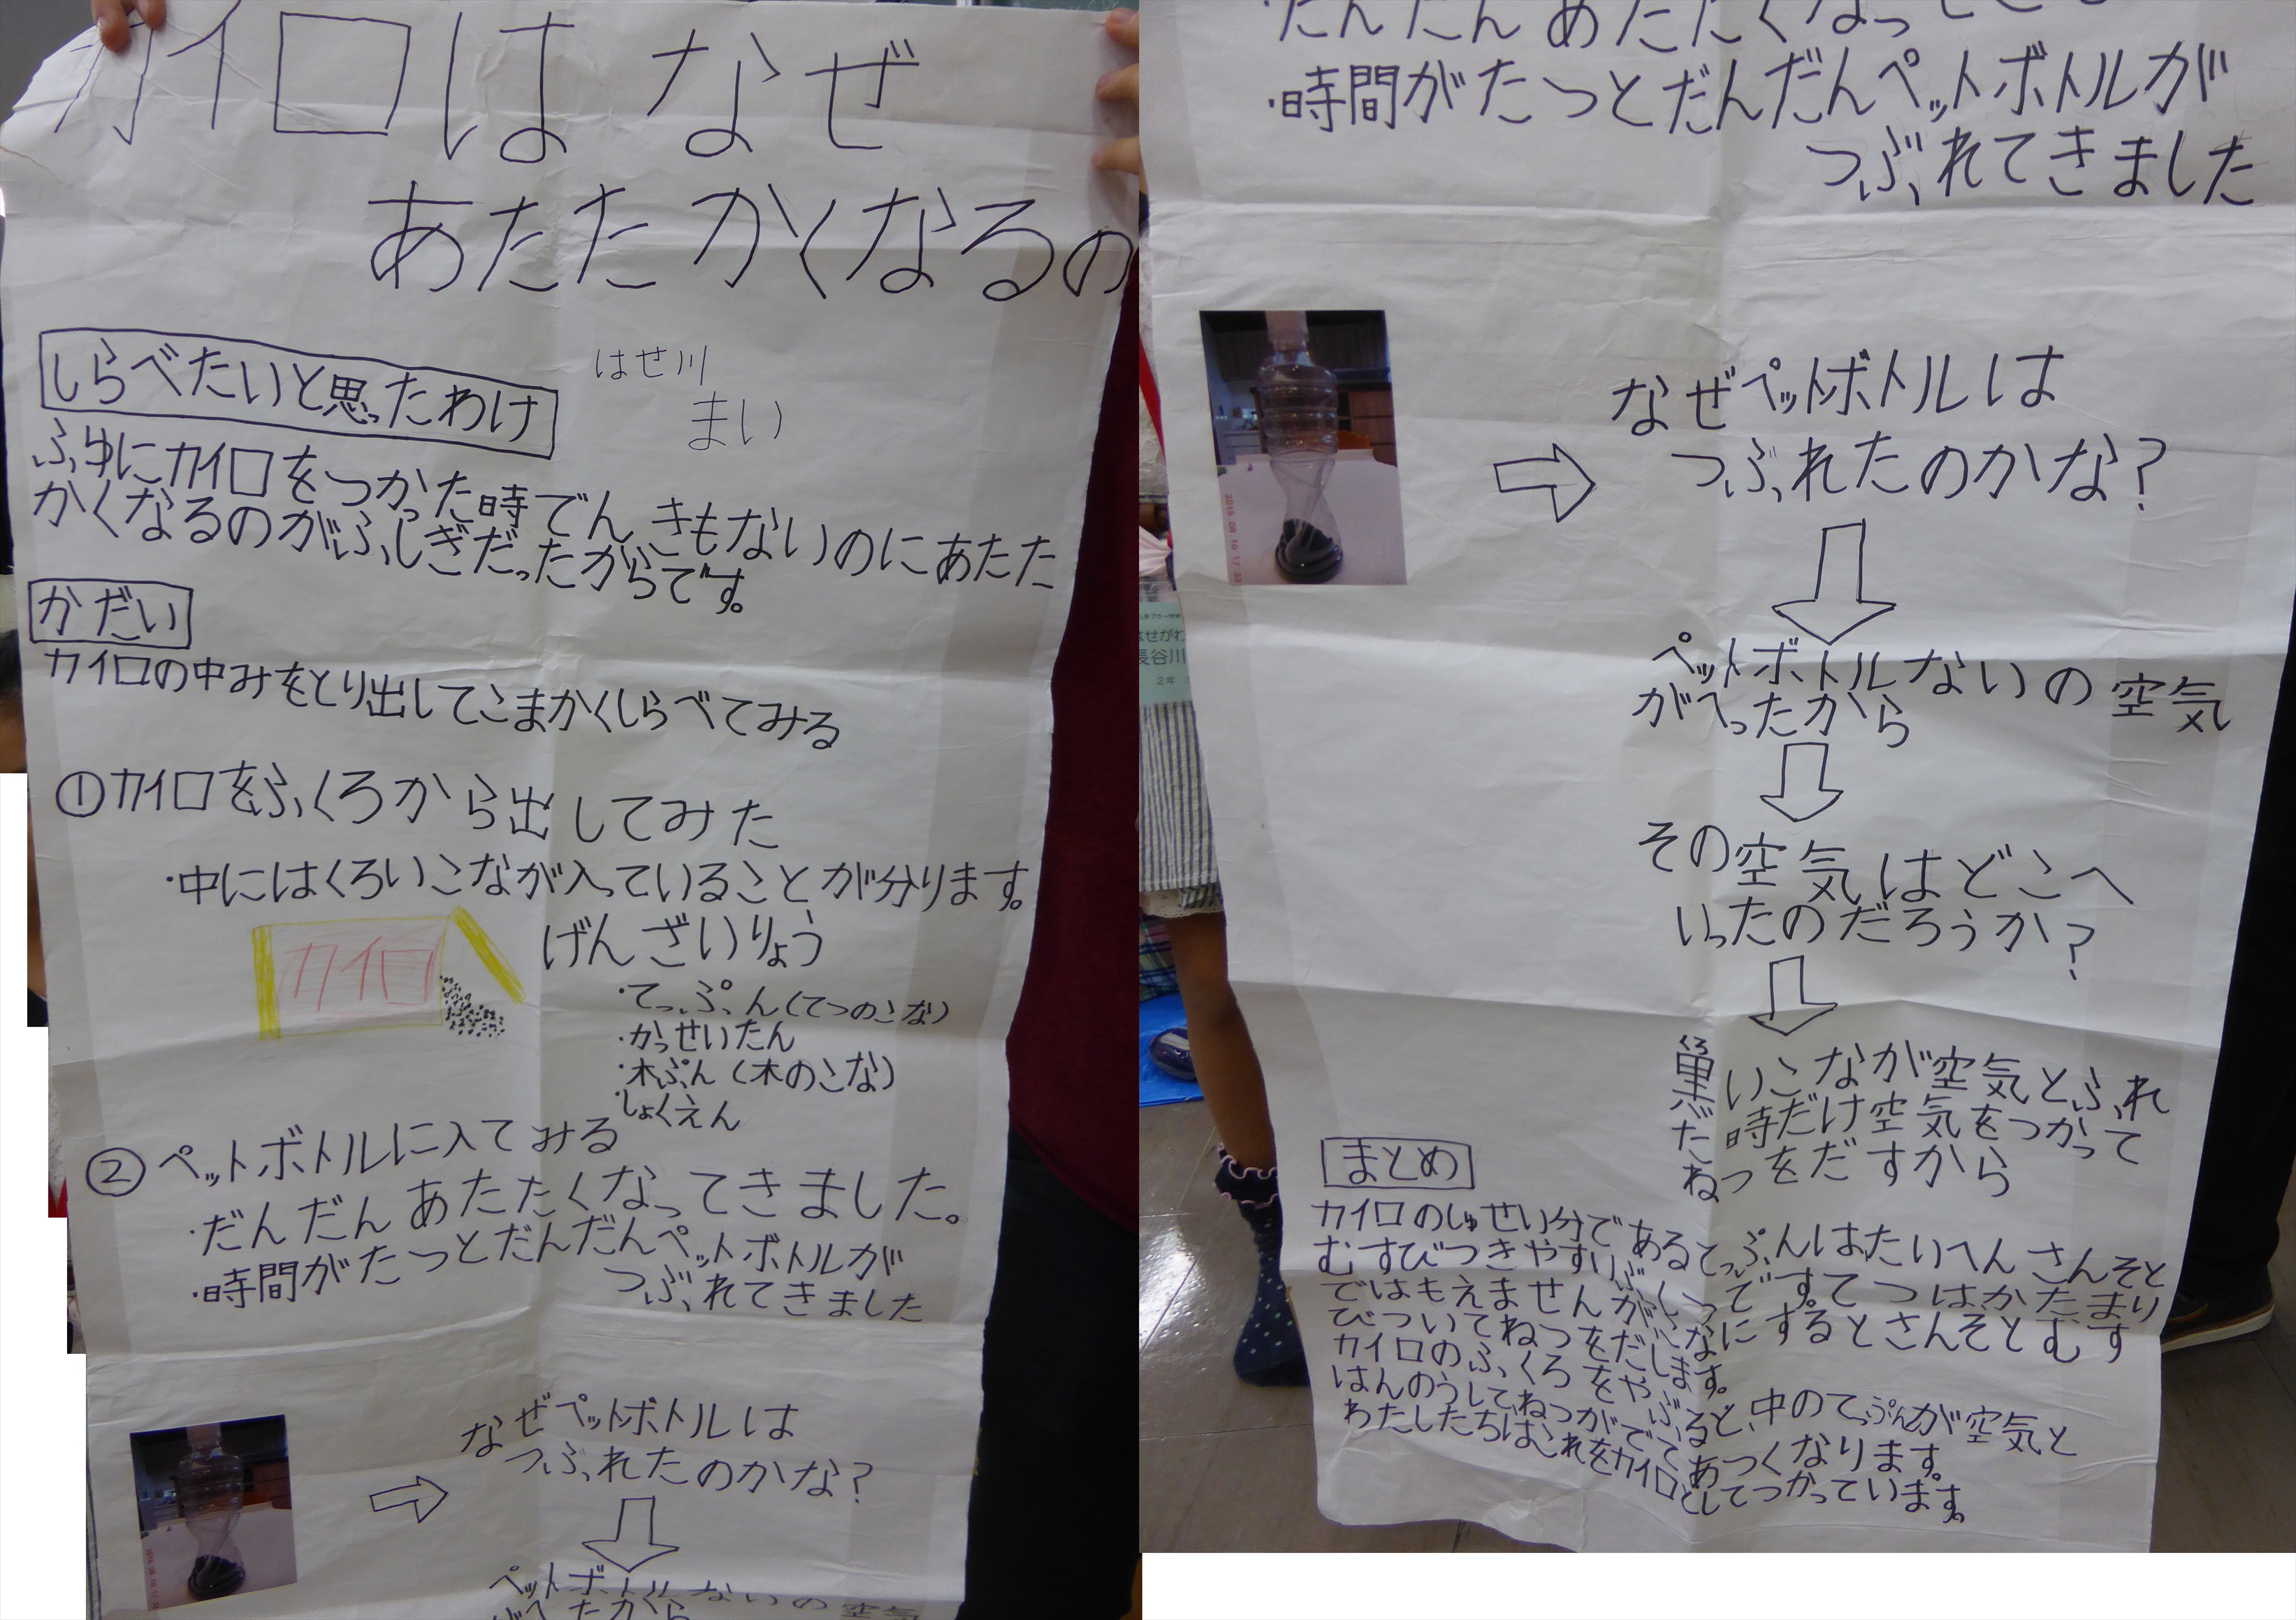 カイロは なぜ
あたたかくなるの
しらべたいと思ったわけ
はせ川
まい
ふゆにカイロをつかった時でんきもないのにあたた
かくなるのがふしぎだったからです。
かだい
カイロの中みをとり出してこまかくしらべてみる
①カイロをふくろから出してみた
・中にはくろいこなが入っていることが分ります。
カイロ
げんざいりょう
・てっぷん(てつのこな)
・かっせいたん
・木ぷん(木のこな)
・しょくえん
②ペットボトルに入てみる
・だんだんあたたくなってきました。
・時間がたつとだんだんペットボトルが
つぶれてきました
なぜペットボトルは
つぶれたのかな?
ペットボトルないの空気
がへったから
・だんだんあたたくなってきま
・時間がたつとだんだんペットボトルが
つぶれてきました
なぜペットボトルは
つぶれたのかな?
ペットボトルないの空気
がへったから
その空気はどこへ
いったのだろうか?
くろ
黒いこなが空気とふれ
た時だけ空気をつかって
ねつをだすから
まとめ
カイロのしゅせい分であるてっぷんはたいへんさんそと
むすびつきやすいぶっしつです。てつはかたまり
ではもえませんがこなにするとさんそとむす
びついてねつをだします。
カイロのふくろをやぶると、中のてっぷんが空気と
はんのうしてねつがでてあつくなります。
わたしたちはこれをカイロとしてつかっています。
はせがわ
長谷川
2年